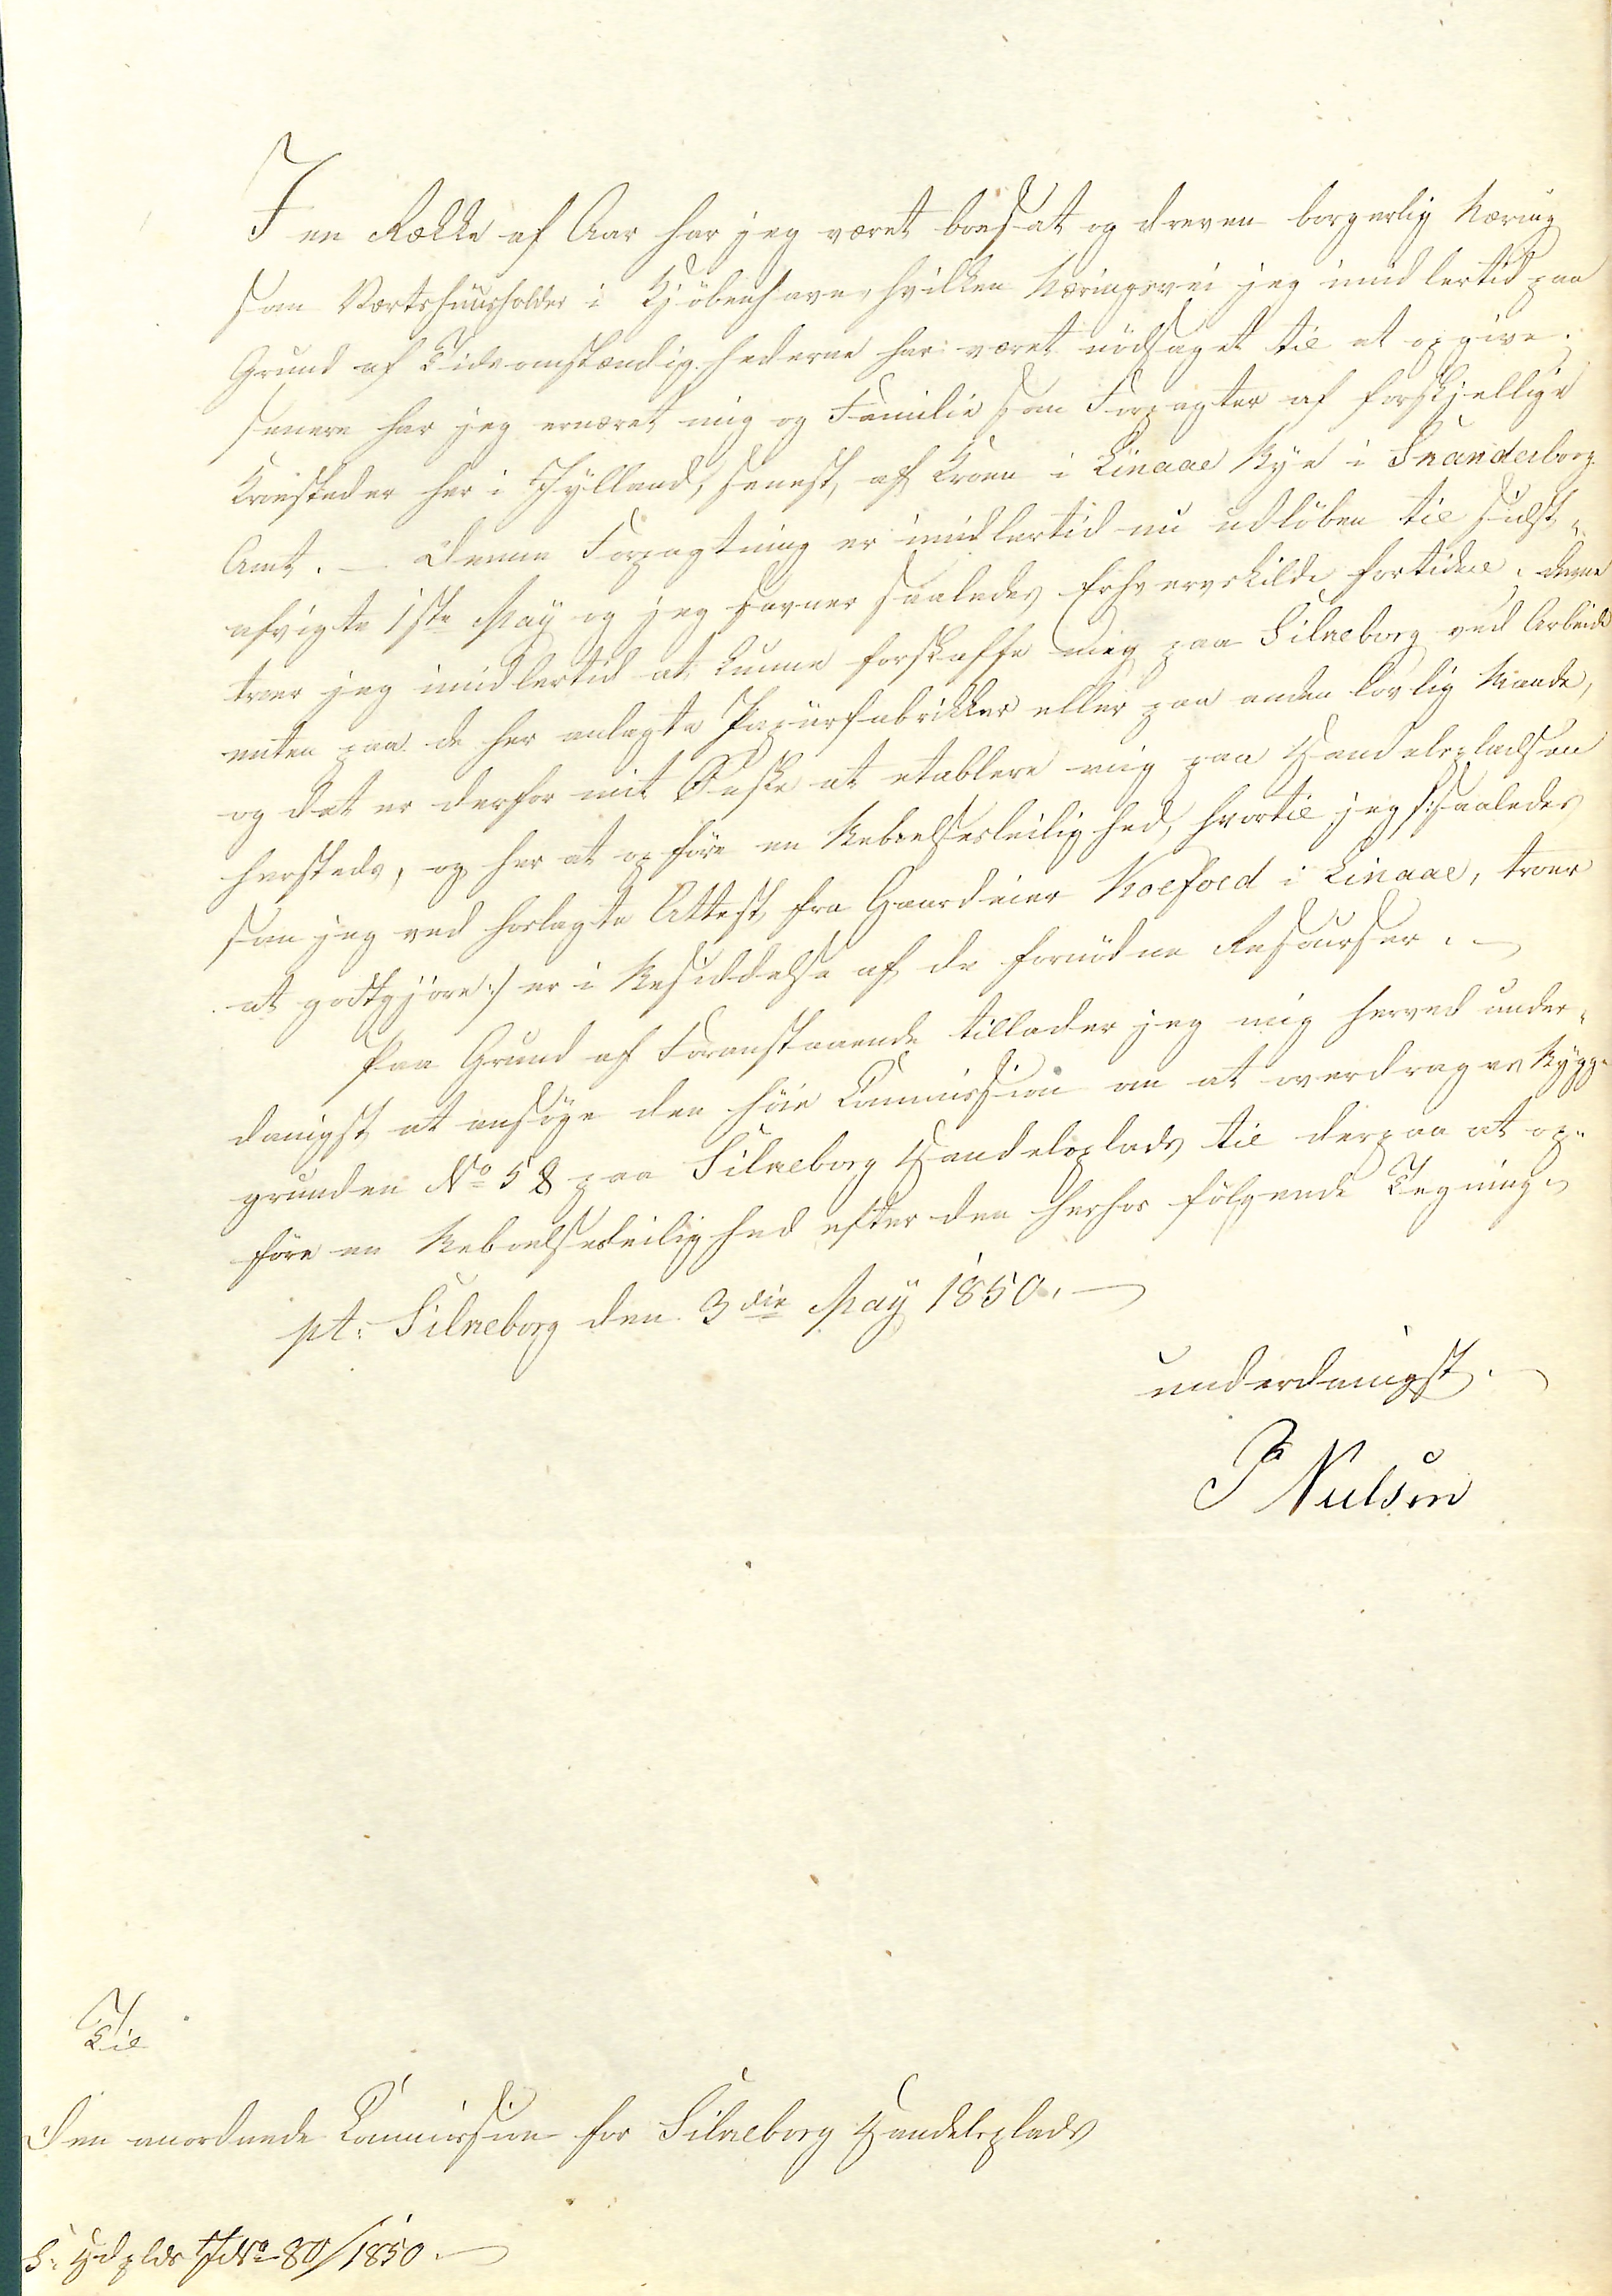 I en Række af Aar har jeg været bosat og dreven borgerlig Næring
som Værtshuusholder i Kjöbenhavn, hvilken Næringsvei jeg imidlertid paa
Grund af Tidsomstændighederne har været nödsaget til at opgive;
senere har jeg ernæret mig og Familie som Forpagter af forskjellige
Kroesteder her i Jylland, senest af Kroen i Linaae Bye i Skanderborg
Amt. — Denne Forpagtning er imidlertid nu udlöben til sidst-
afvigte 1ste May og jeg savner saaledes Erhvervskilde fortiden. denne
troer jeg imidlertid at kunne forskaffe mig paa Silkeborg ved Arbeide
enten paa de her anlagte Papiirfabrikker eller paa anden lovlig Maade,
og det er derfor mit Ønske at etablere mig paa Handelspladsen
hersteds, og her at opföre en Beboelsesleilighed, hvortil jeg /: saaledes
som jeg ved hoslagte Attest fra Gaardeier Koefoed i Linaae, troer
at godtgjöre :/ er i Besiddelse af de fornödne Resourser. —
Paa Grund af Foranstaaende tillader jeg mig herved under-
danigst at ansöge den höie Commission om at overdrages Bygge-
grunden No 58 paa Silkeborg Handelsplads til derpaa at op-
före en Beboelsesleilighed efter den herhos fölgende Tegning.
pt: Silkeborg den 3die May 1850. —
underdanigst.
P Nielsen
Til
Den anordnede Commission for Silkeborg Handelsplads
S. Hdplds J No 80/1850. —